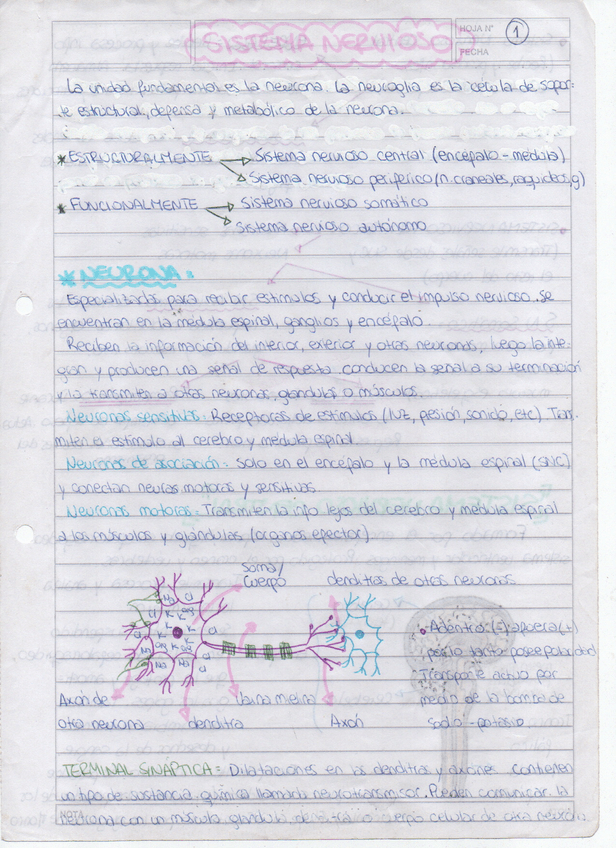 SISTEMA NERVIOSO
HOJA N° 1
FECHA
La unidad fundamental es la neurona. La neuroglia es la célula de sopor-
te estructural, defensa y metabólico de la neurona.
* ESTRUCTURALMENTE → Sistema nervioso central (encéfalo - médula)
→ Sistema nervioso periférico (n. craneales, raquideos, g)
* FUNCIONALMENTE → Sistema nervioso somático
→ Sistema nervioso autónomo
* NEURONA:
Especializadas para recibir estimulos y conducir el impulso nervioso. Se
encuentran en la médula espinal, ganglios y encéfalo.
Reciben la información del interior, exterior y otras neuronas, luego la inte-
gran y producen una señal de respuesta conducen la señal a su terminación
y la transmiten a otras neuronas, glandulas o músculos.
Neuronas sensitivas: Receptoras de estimulos (luz, presión, sonido, etc) Tras-
miten la estimulo al cerebro y médula espinal
Neuronas de asociación: Solo en el encéfalo y la médula espinal (SNC)
y conectan neuras motoras y sensitivas
Neuronas motoras: Transmiten la info lejos del cerebro y médula espinal
a los músculos y glándulas (organos efector)
Soma/
Cuerpo
dendritas de otras neuronas.
Adentro (-) afuera (+)
por lo tanto posee polaridad
Transporte activo por
medio de la bomba de
sodio-potasio
Axón de
otra neurona
dendrita
Vaina mielina
Axón
TERMINAL SINAPTICA: Dilataciones en las dendritas y axones contienen
un tipo de sustancia química llamada neurotransmisor. Pueden comunicar la
neurona con un músculo glandula dendrita o cuerpo celular de otra neurona.
NOTA